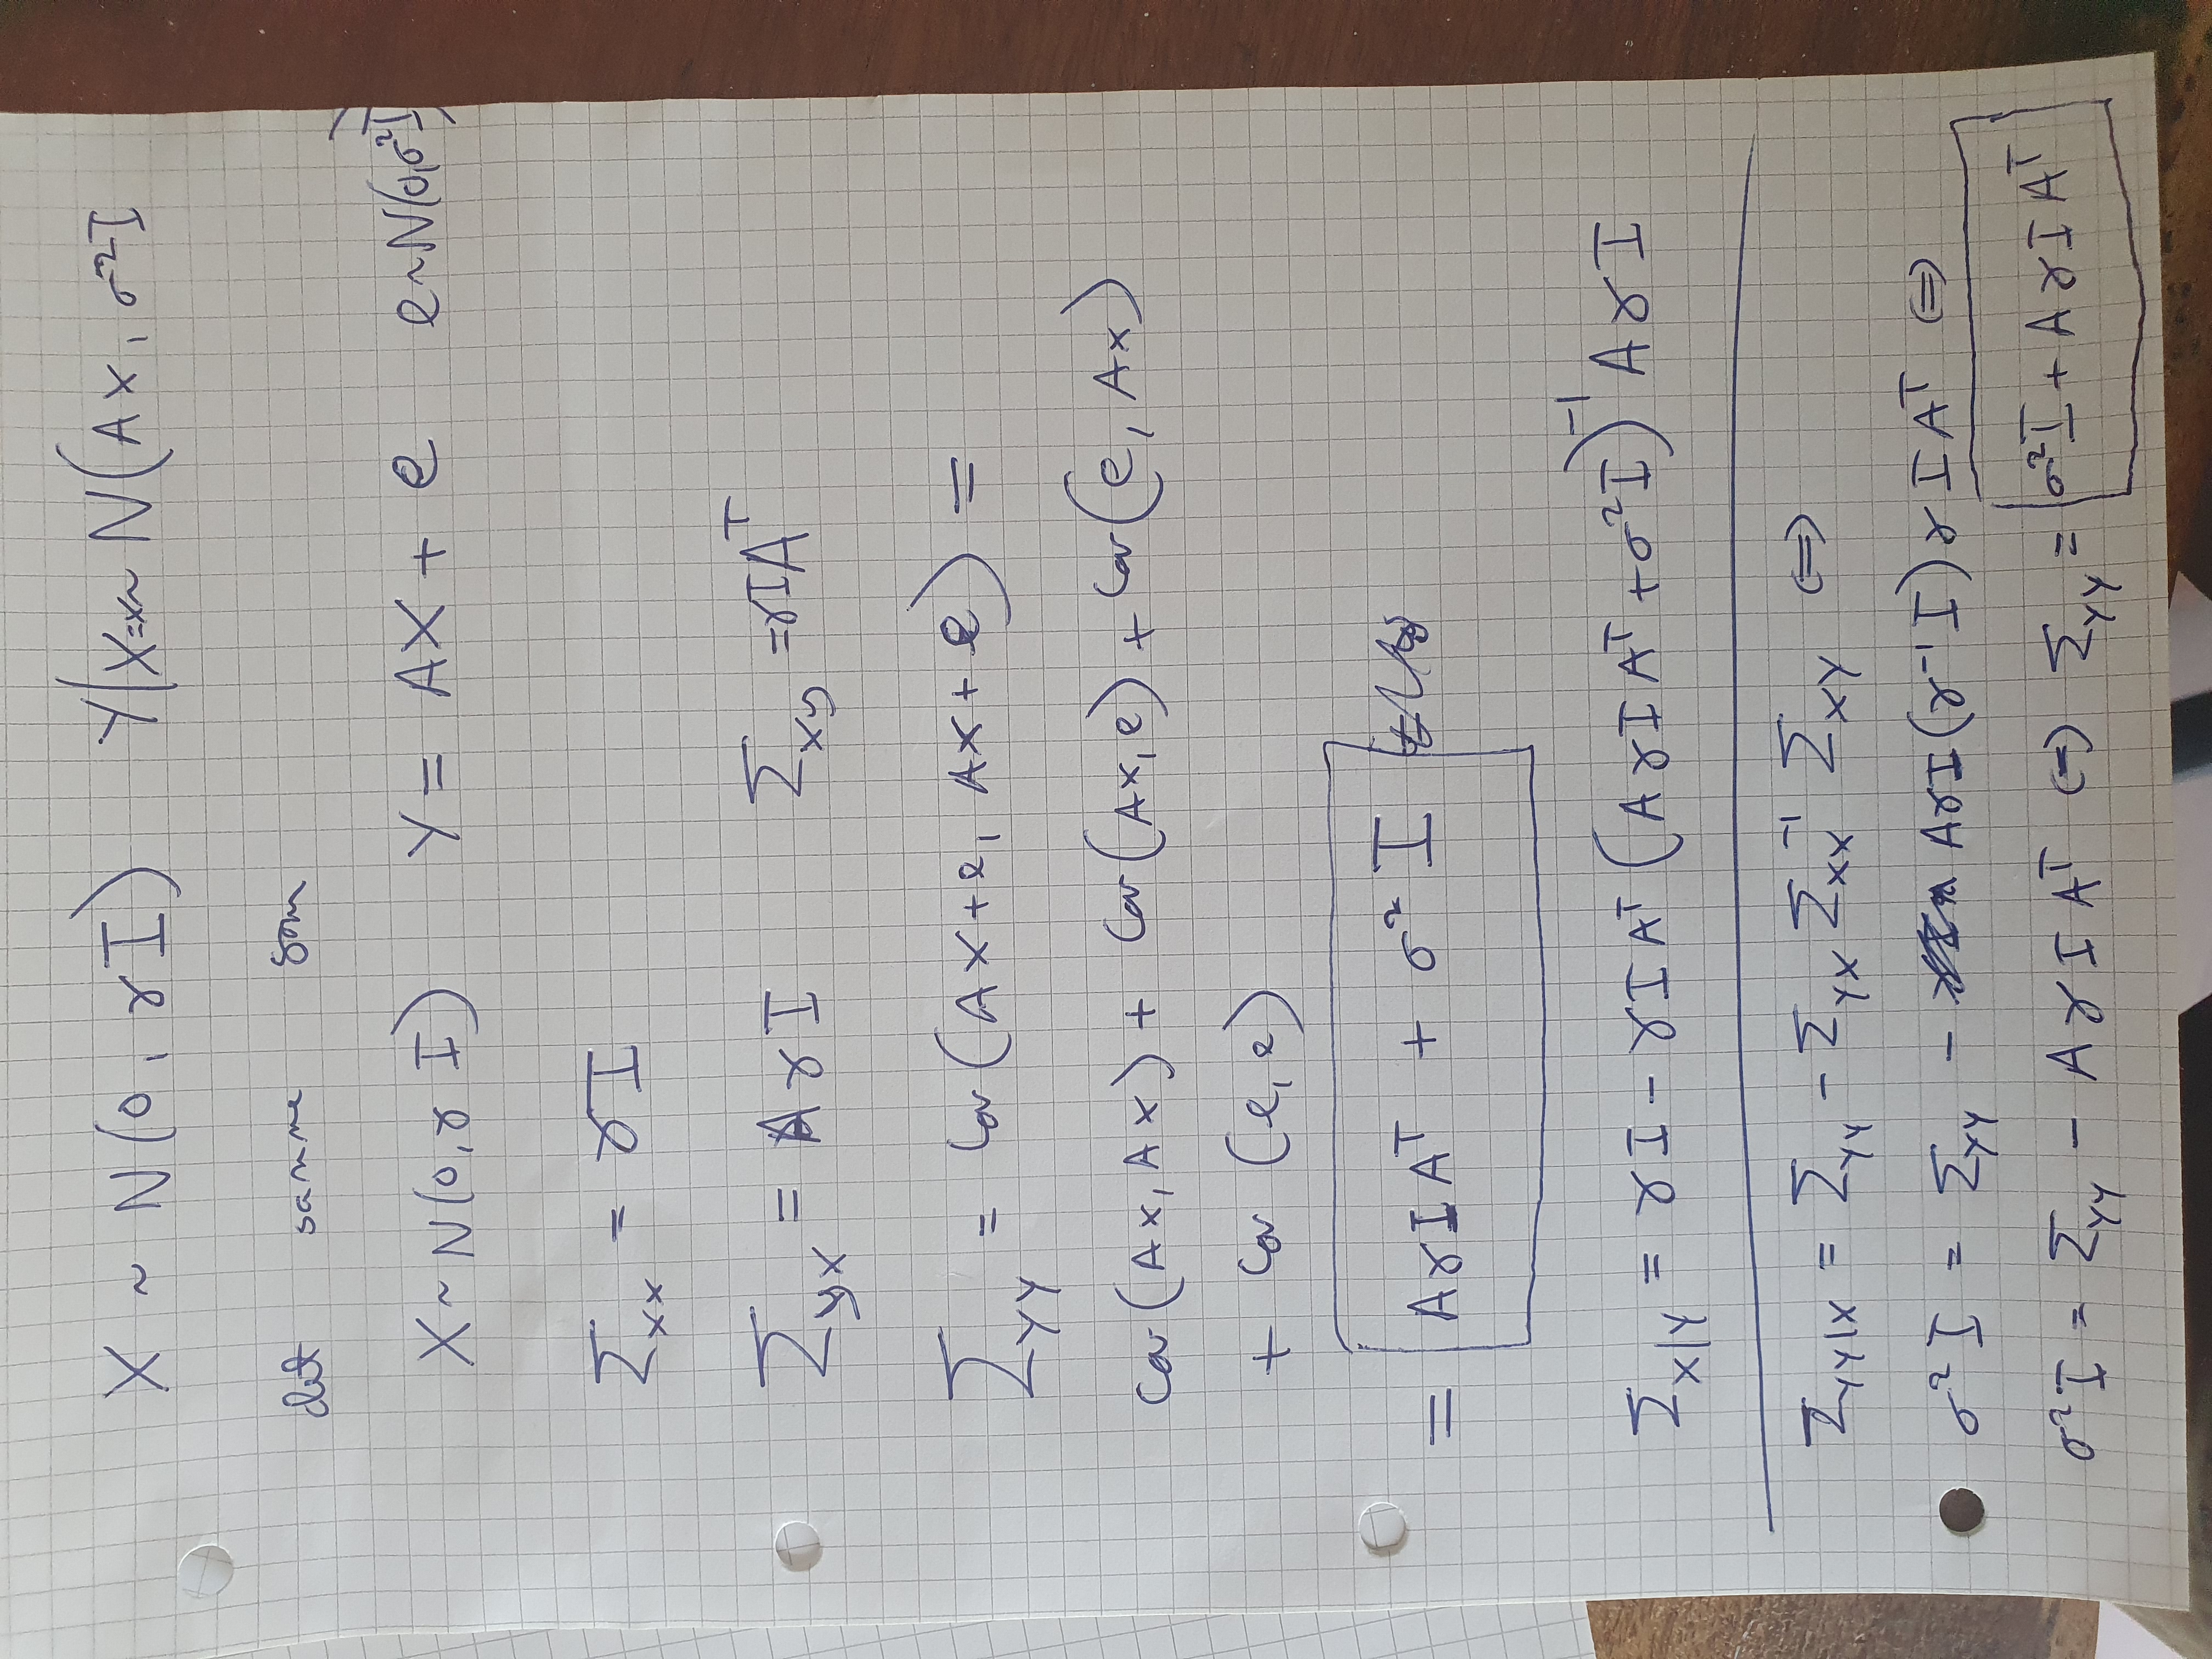 X ~ N(0, γI) Y|X=x ~ N(Ax, σ²I
det samme som
X ~ N(0, γ I) Y = AX + e e ~ N(0, σ²I)
Σ_xx = γI
Σ_yx = A γ I Σ_xy = γIAᵀ
Σ_YY = Cov(AX+e, AX+e) =
Cov(AX, AX) + Cov(AX, e) + Cov(e, AX)
+ Cov (e, e)
= AγIAᵀ + σ² I
Σ_X|Y = γI - γIAᵀ (AγIAᵀ + σ²I)⁻¹ AγI
Σ_YY|X = Σ_YY - Σ_YX Σ_XX⁻¹ Σ_XY ⇔
σ²I = Σ_YY - AγI(γ⁻¹I)γIAᵀ ⇔
σ²I = Σ_YY - AγIAᵀ ⇔ Σ_YY = σ²I + AγIAᵀ